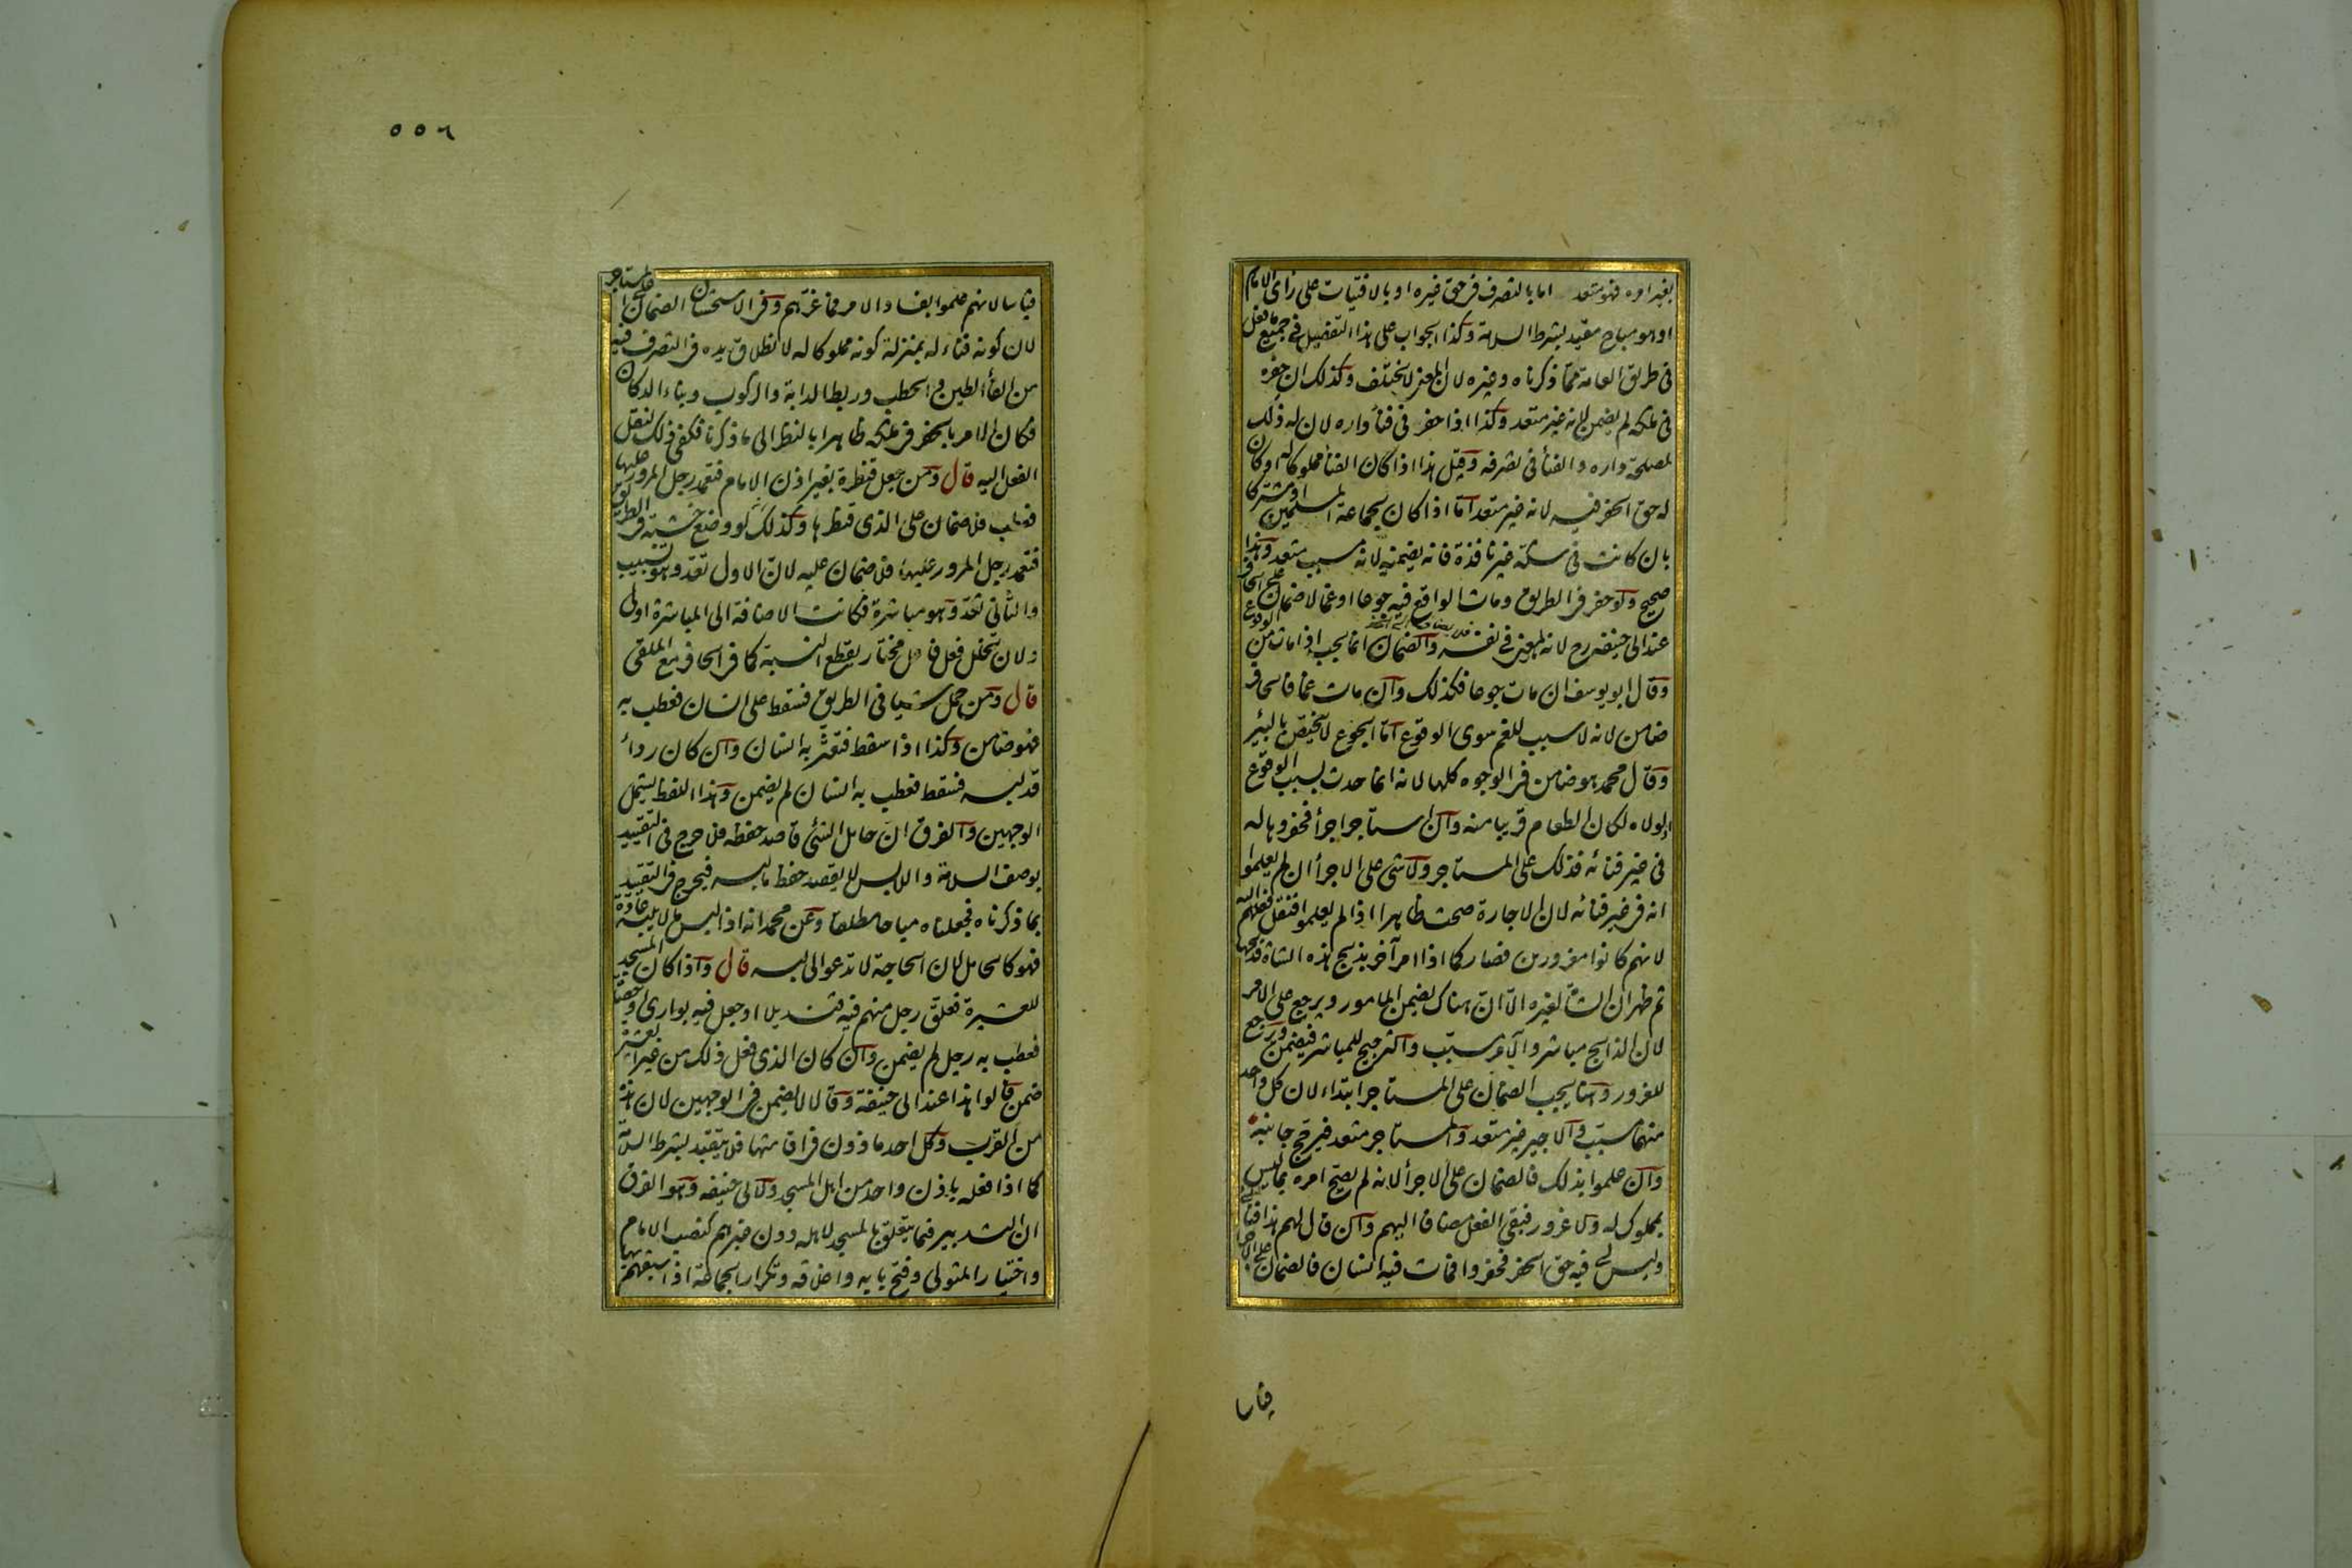 بغير امره فهو متعد اما بالتصرف فى حق غيره او بالافتيات على راى الامام
او هو مباح مقيد بشرط السلامة وكذا الجواب على هذا التفصيل فى جميع ما فعل
فى طريق العامة مما ذكرناه وغيره لان المعنى لا يختلف وكذلك ان حفره
فى ملكه لم يضمن لانه غير متعد وكذا اذا حفر فى فناء داره لان له ذلك
لمصلحة داره والفناء فى تصرفه وقيل هذا اذا كان الفناء مملوكا له او كان
له حق الحفر فيه لانه غير متعد اما اذا كان لجماعة المسلمين او مشتركا
بان كانت فى سكة غير نافذة فانه يضمنه لانه مسبب متعد وهذا
صحيح ولو حفر فى الطريق ومات الواقع فيه جوعا او غما لا ضمان على الحافر
عند ابى حنيفة رح لانه لمعنى فى نفسه فلا يضاف الى الحفر والضمان انما يجب اذا مات من الوقوع
وقال ابو يوسف ان مات جوعا فكذلك وان مات غما فالحافر
ضامن لانه لا سبب للغم سوى الوقوع اما الجوع لا يختص بالبئر
وقال محمد هو ضامن فى الوجوه كلها لانه انما حدث بسبب الوقوع
اذ لولاه لكان الطعام قريبا منه وان استاجر اجراء فحفروها له
فى غير فنائه فذلك على المستاجر ولا شئ على الاجراء ان لم يعلموا
انه فى غير فنائه لان الاجارة صحت ظاهرا اذا لم يعلموا فنقل فعلهم اليه
لانهم كانوا مغرورين فصار كما اذا امر آخر بذبح هذه الشاة فذبحها
ثم ظهر ان الشاة لغيره الا ان هناك يضمن المامور ويرجع على الآمر
لان الذابح مباشر والآمر مسبب والترجيح للمباشر فيضمن ويرجع
للغرور وهنا يجب الضمان على المستاجر ابتداء لان كل واحد
منهما مسبب والاجير غير متعد والمستاجر متعد فيرجح جانبه
وان علموا بذلك فالضمان على الاجراء لانه لم يصح امره بما ليس
بمملوك له ولا غرور فبقى الفعل مضافا اليهم وان قال لهم هذا فنائى
وليس لى فيه حق الحفر فحفروا فمات فيه انسان فالضمان على الاجراء
قياسا
٥٥٦
قياسا لانهم علموا بفساد الامر فما غرهم وفى الاستحسان الضمان على المستاجر
لان كونه فناء له بمنزلة كونه مملوكا له لانطلاق يده فى التصرف فيه
من القاء الطين والحطب وربط الدابة والركوب وبناء الدكان
فكان الامر بالحفر فى ملكه ظاهرا بالنظر الى ما ذكرنا فكفى ذلك لنقل
الفعل اليه قال ومن جعل قنطرة بغير اذن الامام فتعمد رجل المرور عليها
فعطب فلا ضمان على الذى قنطرها وكذلك لو وضع خشبة فى الطريق
فتعمد رجل المرور عليها فلا ضمان عليه لان الاول تعد وهو تسبيب
والثانى تعد وهو مباشرة فكانت الاضافة الى المباشرة اولى
ولان تخلل فعل فاعل مختار يقطع النسبة كما فى الحافر مع الملقى
قال ومن حمل شيا فى الطريق فسقط على انسان فعطب به
فهو ضامن وكذا اذا سقط فتعثر به انسان وان كان رداء
قد لبسه فسقط فعطب به انسان لم يضمن وهذا اللفظ يشمل
الوجهين والفرق ان حامل الشئ قاصد حفظه فلا حرج فى التقييد
بوصف السلامة واللابس لا يقصد حفظ ما يلبسه فيحرج فى التقييد
بما ذكرناه فجعلناه مباحا مطلقا وعن محمد انه اذا لبس ما لا يلبسه عادة
فهو كالحامل لان الحاجة لا تدعو الى لبسه قال واذا كان المسجد
للعشيرة فعلق رجل منهم فيه قنديلا او جعل فيه بوارى او حصاة
فعطب به رجل لم يضمن وان كان الذى فعل ذلك من غير العشيرة
ضمن قالوا هذا عند ابى حنيفة وقالا لا يضمن فى الوجهين لان هذه
من القرب وكل احد ماذون فى اقامتها فلا يتقيد بشرط السلامة
كما اذا فعله باذن واحد من اهل المسجد ولابى حنيفة وهو الفرق
ان التدبير فيما يتعلق بالمسجد لاهله دون غيرهم كنصب الامام
واختيار المتولى وفتح بابه واغلاقه وتكرار الجماعة اذا سبقهم بها